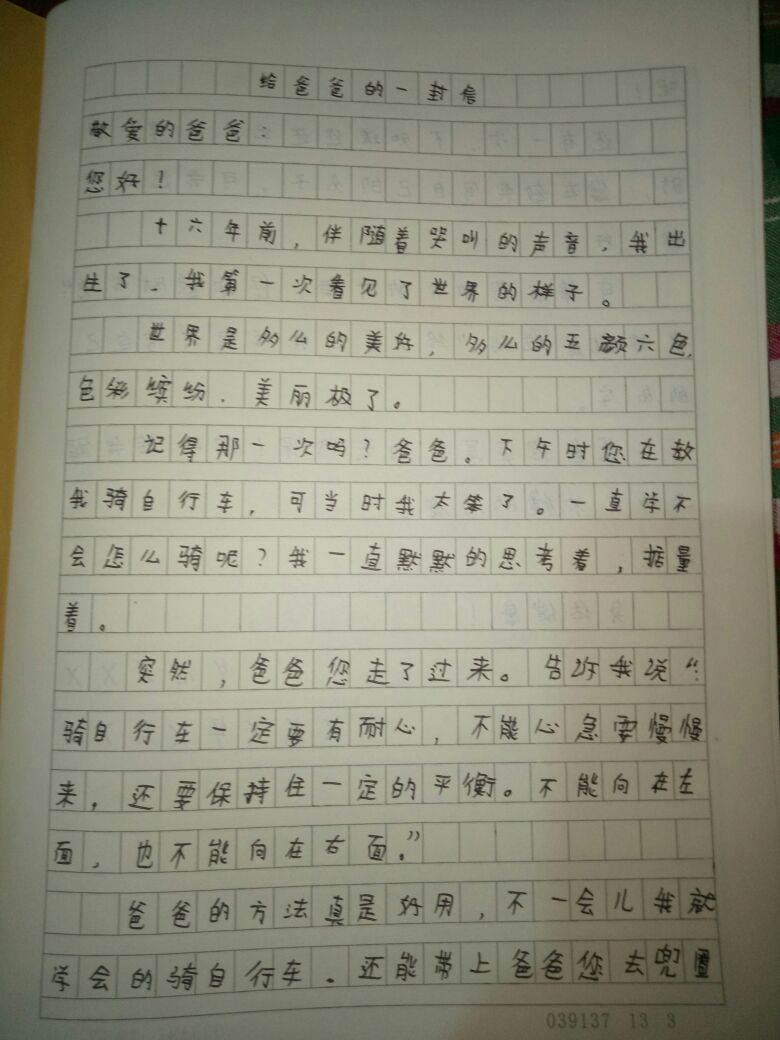 给爸爸的一封信
敬爱的爸爸：
您好！
十六年前，伴随着哭叫的声音，我出
生了．我第一次看见了世界的样子。
世界是多么的美好，多么的五颜六色，
色彩缤纷．美丽极了。
记得那一次吗？爸爸。下午时您在教
我骑自行车，可当时我太笨了。一直学不
会怎么骑呢？我一直默默的思考着，掂量
着。
突然，爸爸您走了过来。告诉我说“：
骑自行车一定要有耐心，不能心急要慢慢
来，还要保持住一定的平衡。不能向在左
面，也不能向在右面。”
爸爸的方法真是好用，不一会儿我就
学会的骑自行车。还能带上爸爸您去兜
039137 13 3